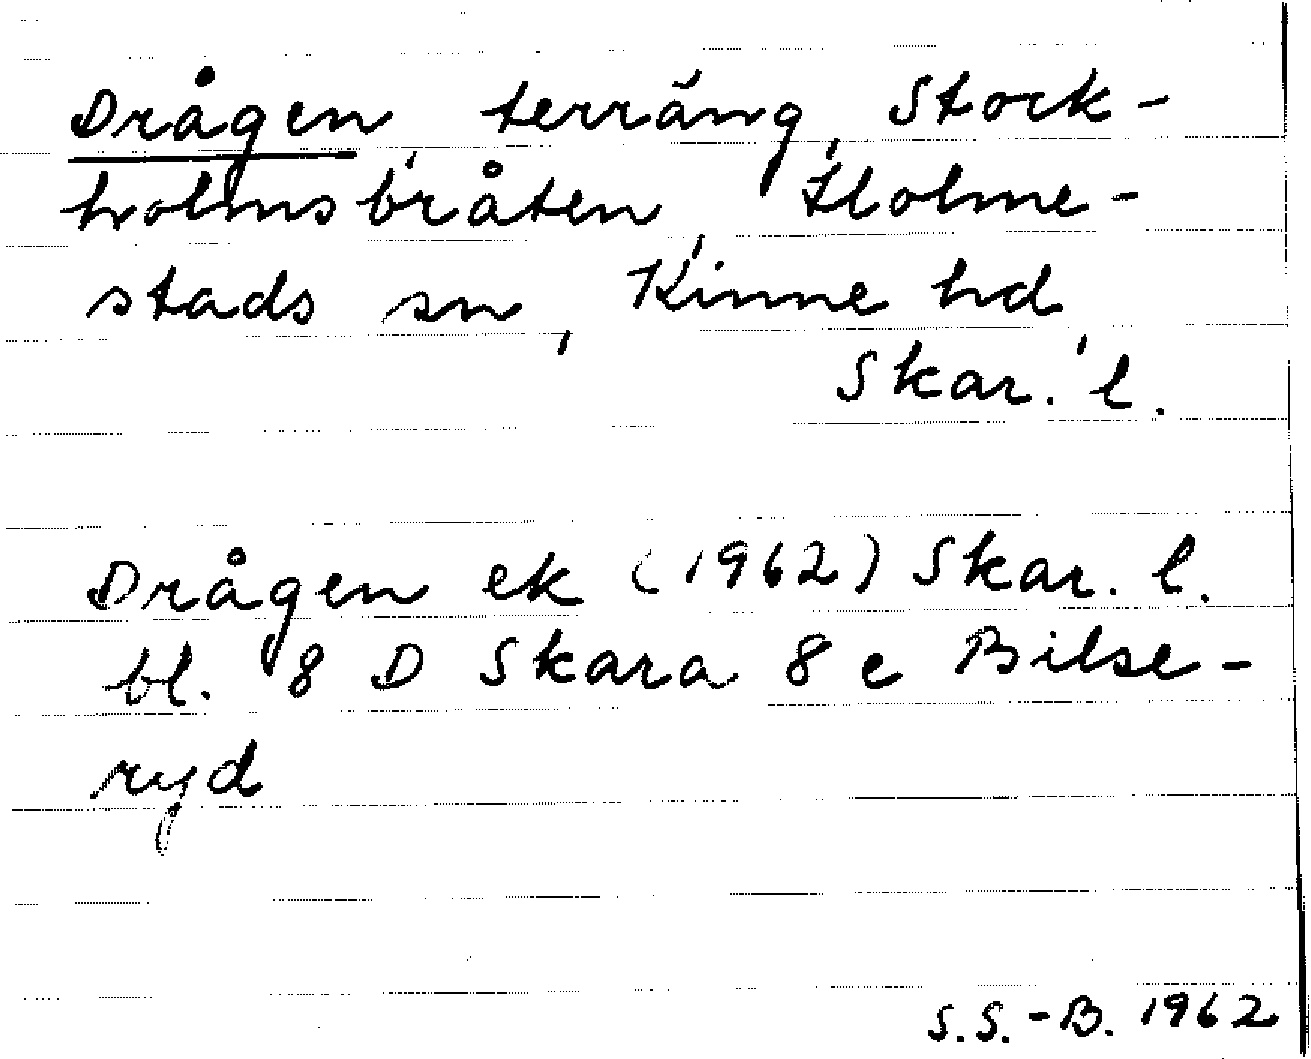 Drågen, terräng, Stock-
holmsbråten, Holme-
stads sn, Kinne hd,
Skar. l.
Drågen ek (1962) Skar. l.
bl. 8 D Skara 8 e Bilse-
ryd
S.S.-B. 1962